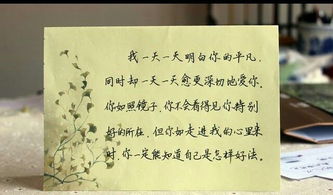 我一天一天明白你的平凡,
同时却一天一天愈更深切地爱你.
你如照镜子,你不会看得见你特别
好的所在,但你如走进我的心里来
时,你一定能知道自己是怎样好法。